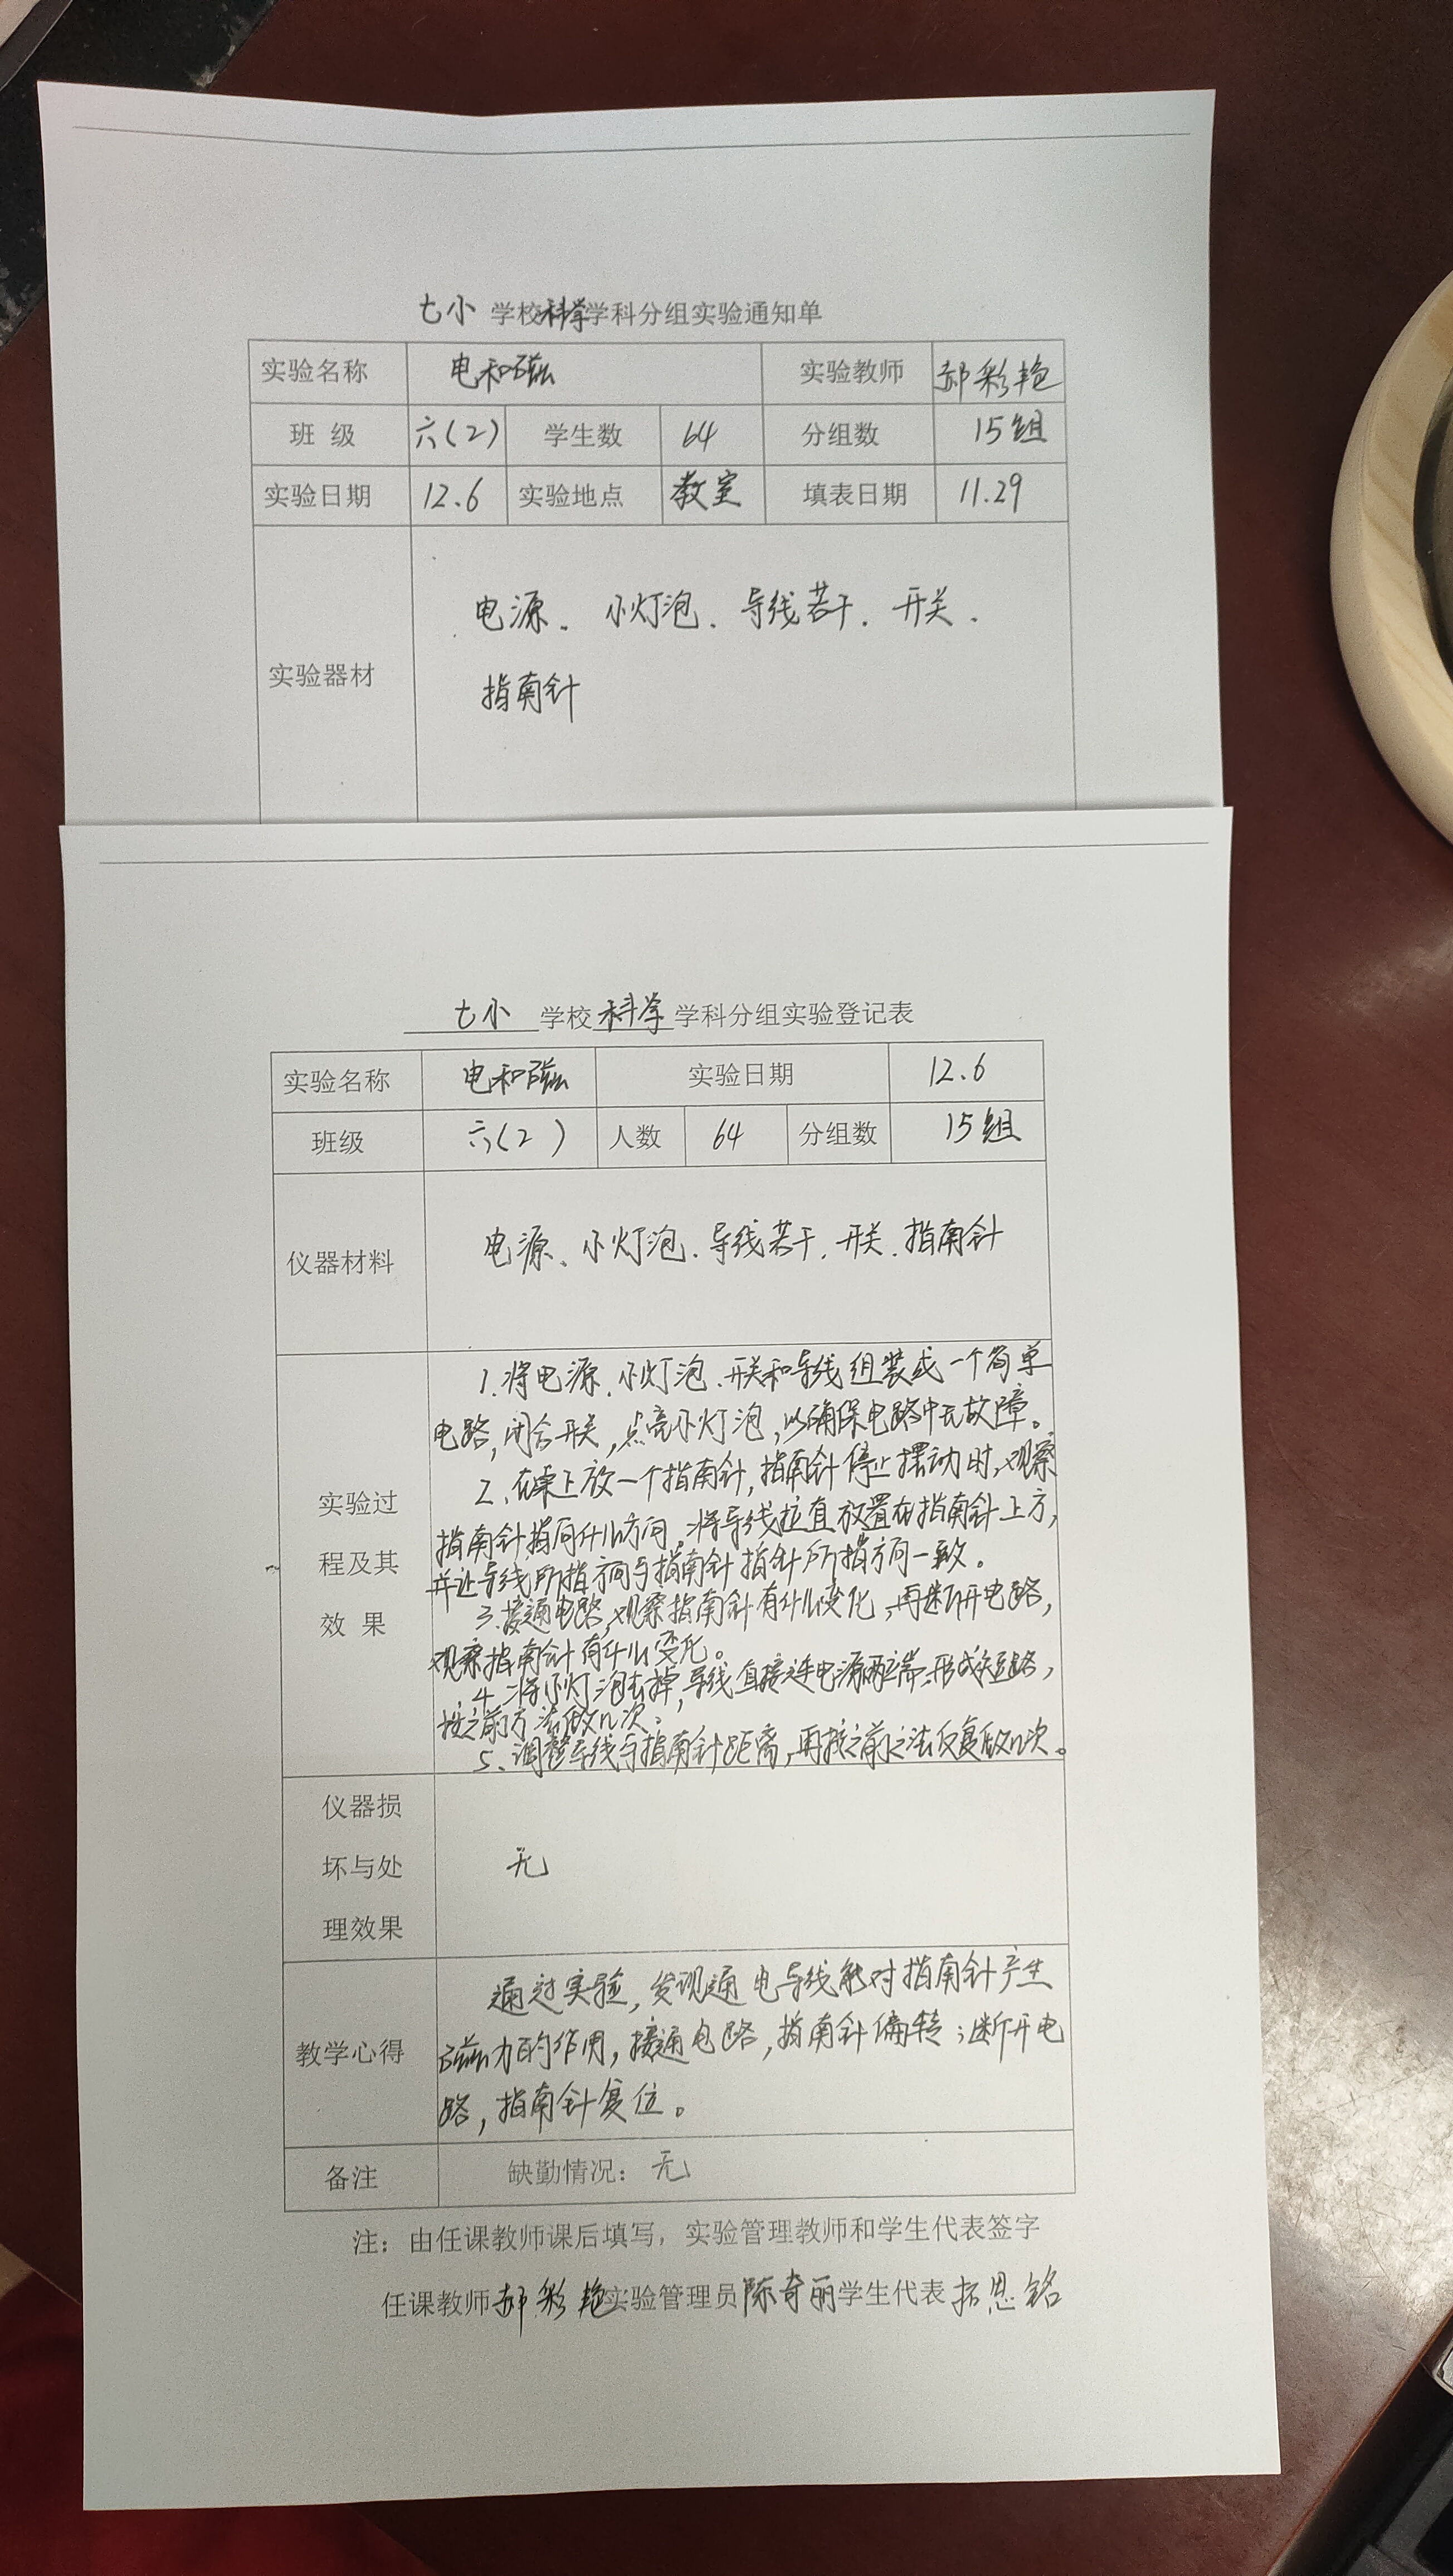 七小 学校科学学科分组实验通知单
实验名称 电和磁 实验教师 郝彩艳
班 级 六(2) 学生数 64 分组数 15组
实验日期 12.6 实验地点 教室 填表日期 11.29
实验器材 电源、小灯泡、导线若干、开关、
指南针
七小 学校 科学 学科分组实验登记表
实验名称 电和磁 实验日期 12.6
班级 六(2) 人数 64 分组数 15组
仪器材料 电源、小灯泡、导线若干、开关、指南针
实验过
程及其
效 果
1、将电源、小灯泡、开关和导线组装成一个简单
电路,闭合开关,点亮小灯泡,以确保电路中无故障。
2、在桌上放一个指南针,指南针停止摆动时,观察
指南针指向什么方向。将导线拉直放置在指南针上方,
并让导线所指方向与指南针指针所指方向一致。
3、接通电路,观察指南针有什么变化,再断开电路,
观察指南针有什么变化。
4、将小灯泡去掉,导线直接连电源两端,形成短路,
按之前方法做几次。
5、调整导线与指南针距离,再按之前之法反复做几次。
仪器损
坏与处
理效果
无
教学心得 通过实验,发现通电导线能对指南针产生
磁力的作用,接通电路,指南针偏转;断开电
路,指南针复位。
备注 缺勤情况:无
注:由任课教师课后填写,实验管理教师和学生代表签字
任课教师郝彩艳实验管理员陈奇丽学生代表拓恩铭